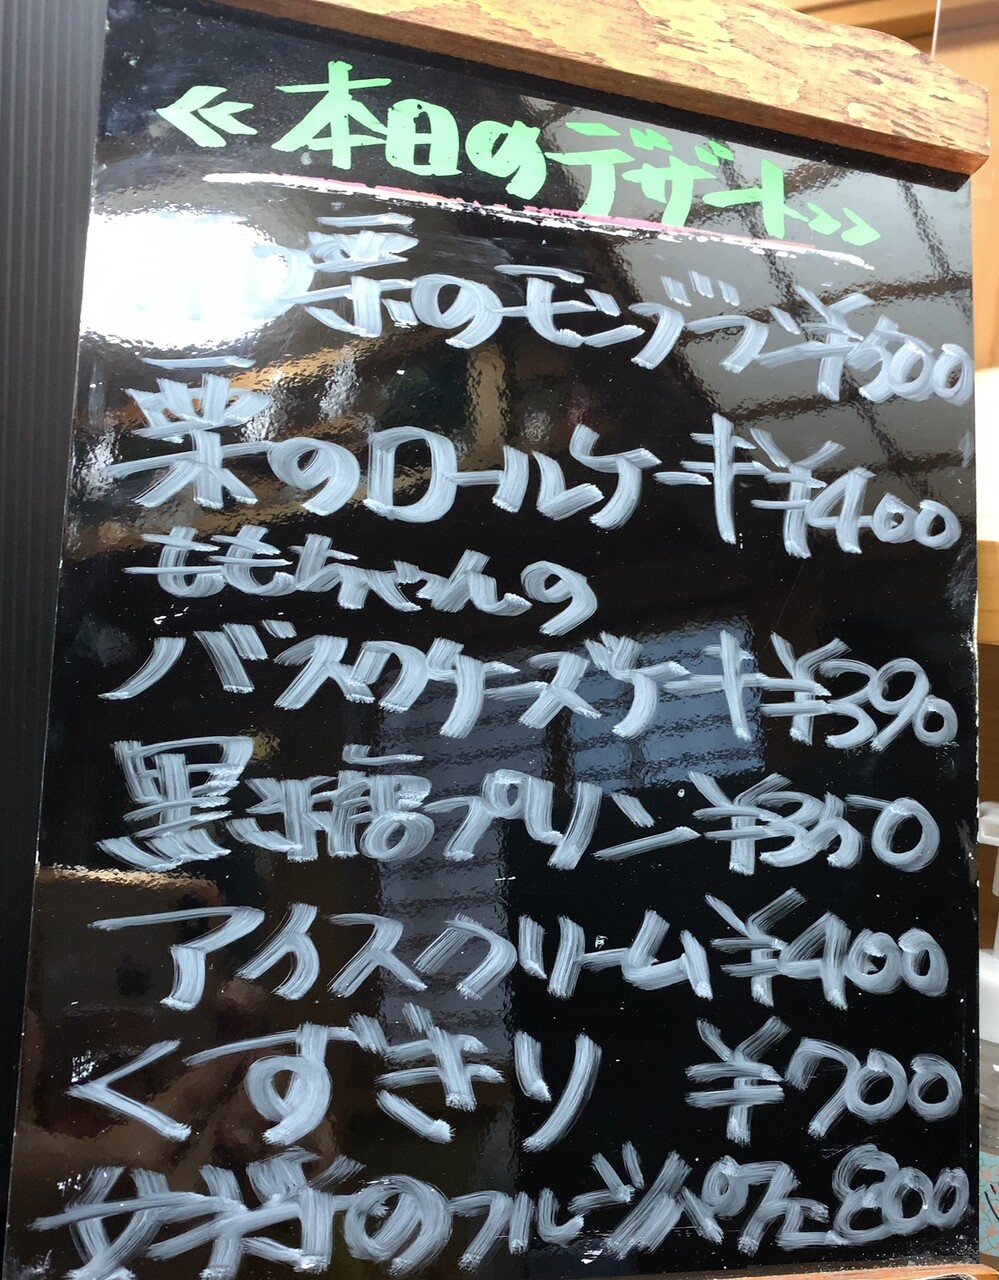 ≪本日のデザート>>
栗のモンブラン ¥500
栗のロールケーキ ¥400
ももちゃんの
バスクチーズケーキ ¥390
黒糖プリン ¥350
アイスクリーム ¥400
くずきり ¥700
のフルーツパフェ 800